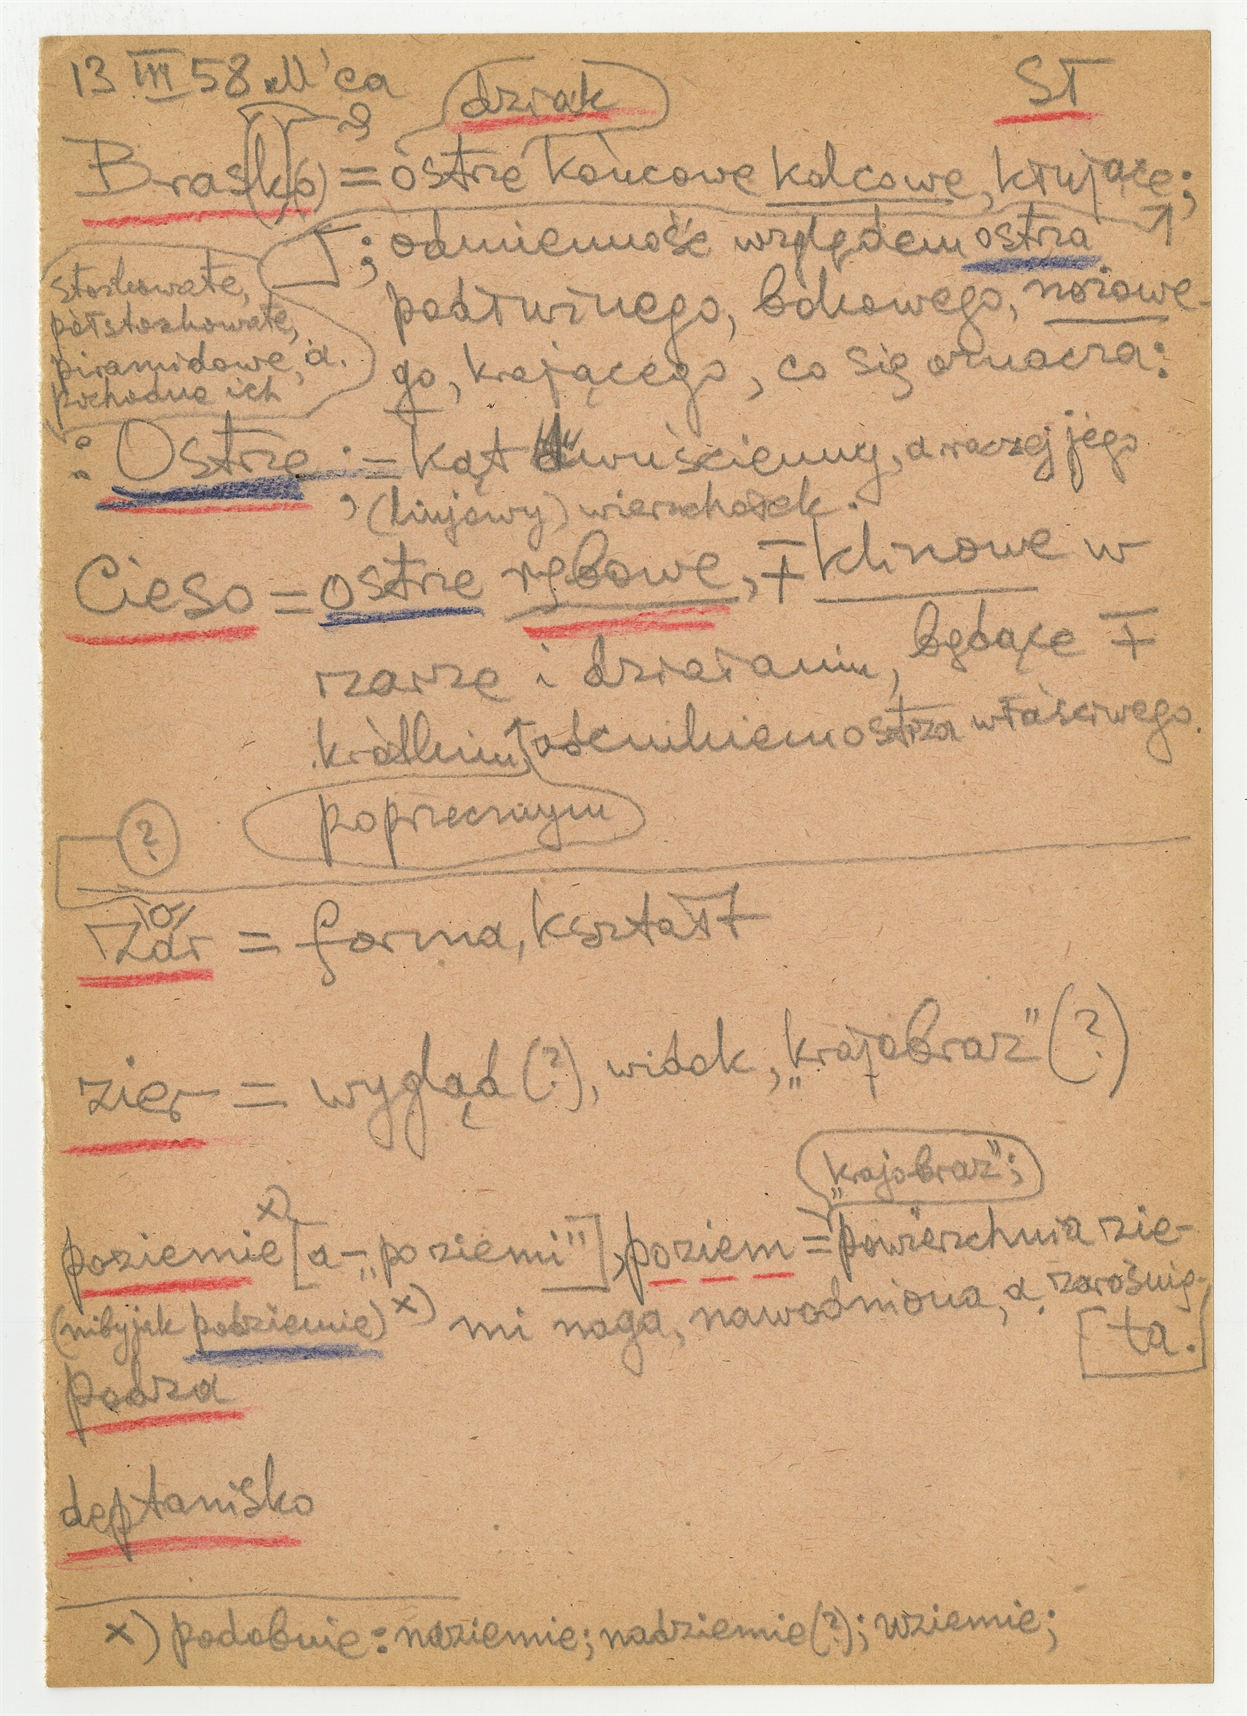 13 III 58 M'ca
dziak
ST
Bras(k)(o) = ostrze końcowe kolcowe, kłujące;
; odmienność względem ostrza
podłużnego, bokowego, nożowe-
go, krającego, co się oznacza:
stożkowate,
półstożkowate,
piramidowe, a.
pochodne ich
: Ostrze := kąt dwuścienny, a raczej jego
, (linjowy) wierzchołek.
Cieso = ostrze rębowe, ∓ klinowe w
rzarze i działaniu, będące ∓
krótkim, odcinkiem ostrza właściwego.
poprzecznym
?
rzar = forma, kształt
o
zier = wygląd (?), widok, „krajobraz" (?)
„krajobraz";
poziemie x) [a - „poziemi"], poziem = powierzchnia zie-
(niby jak podziemie) x) mi naga, nawodniona, a. zarośnię-
ta.
podza
deptanisko
x) podobnie: naziemie; nadziemie (?); wziemie;